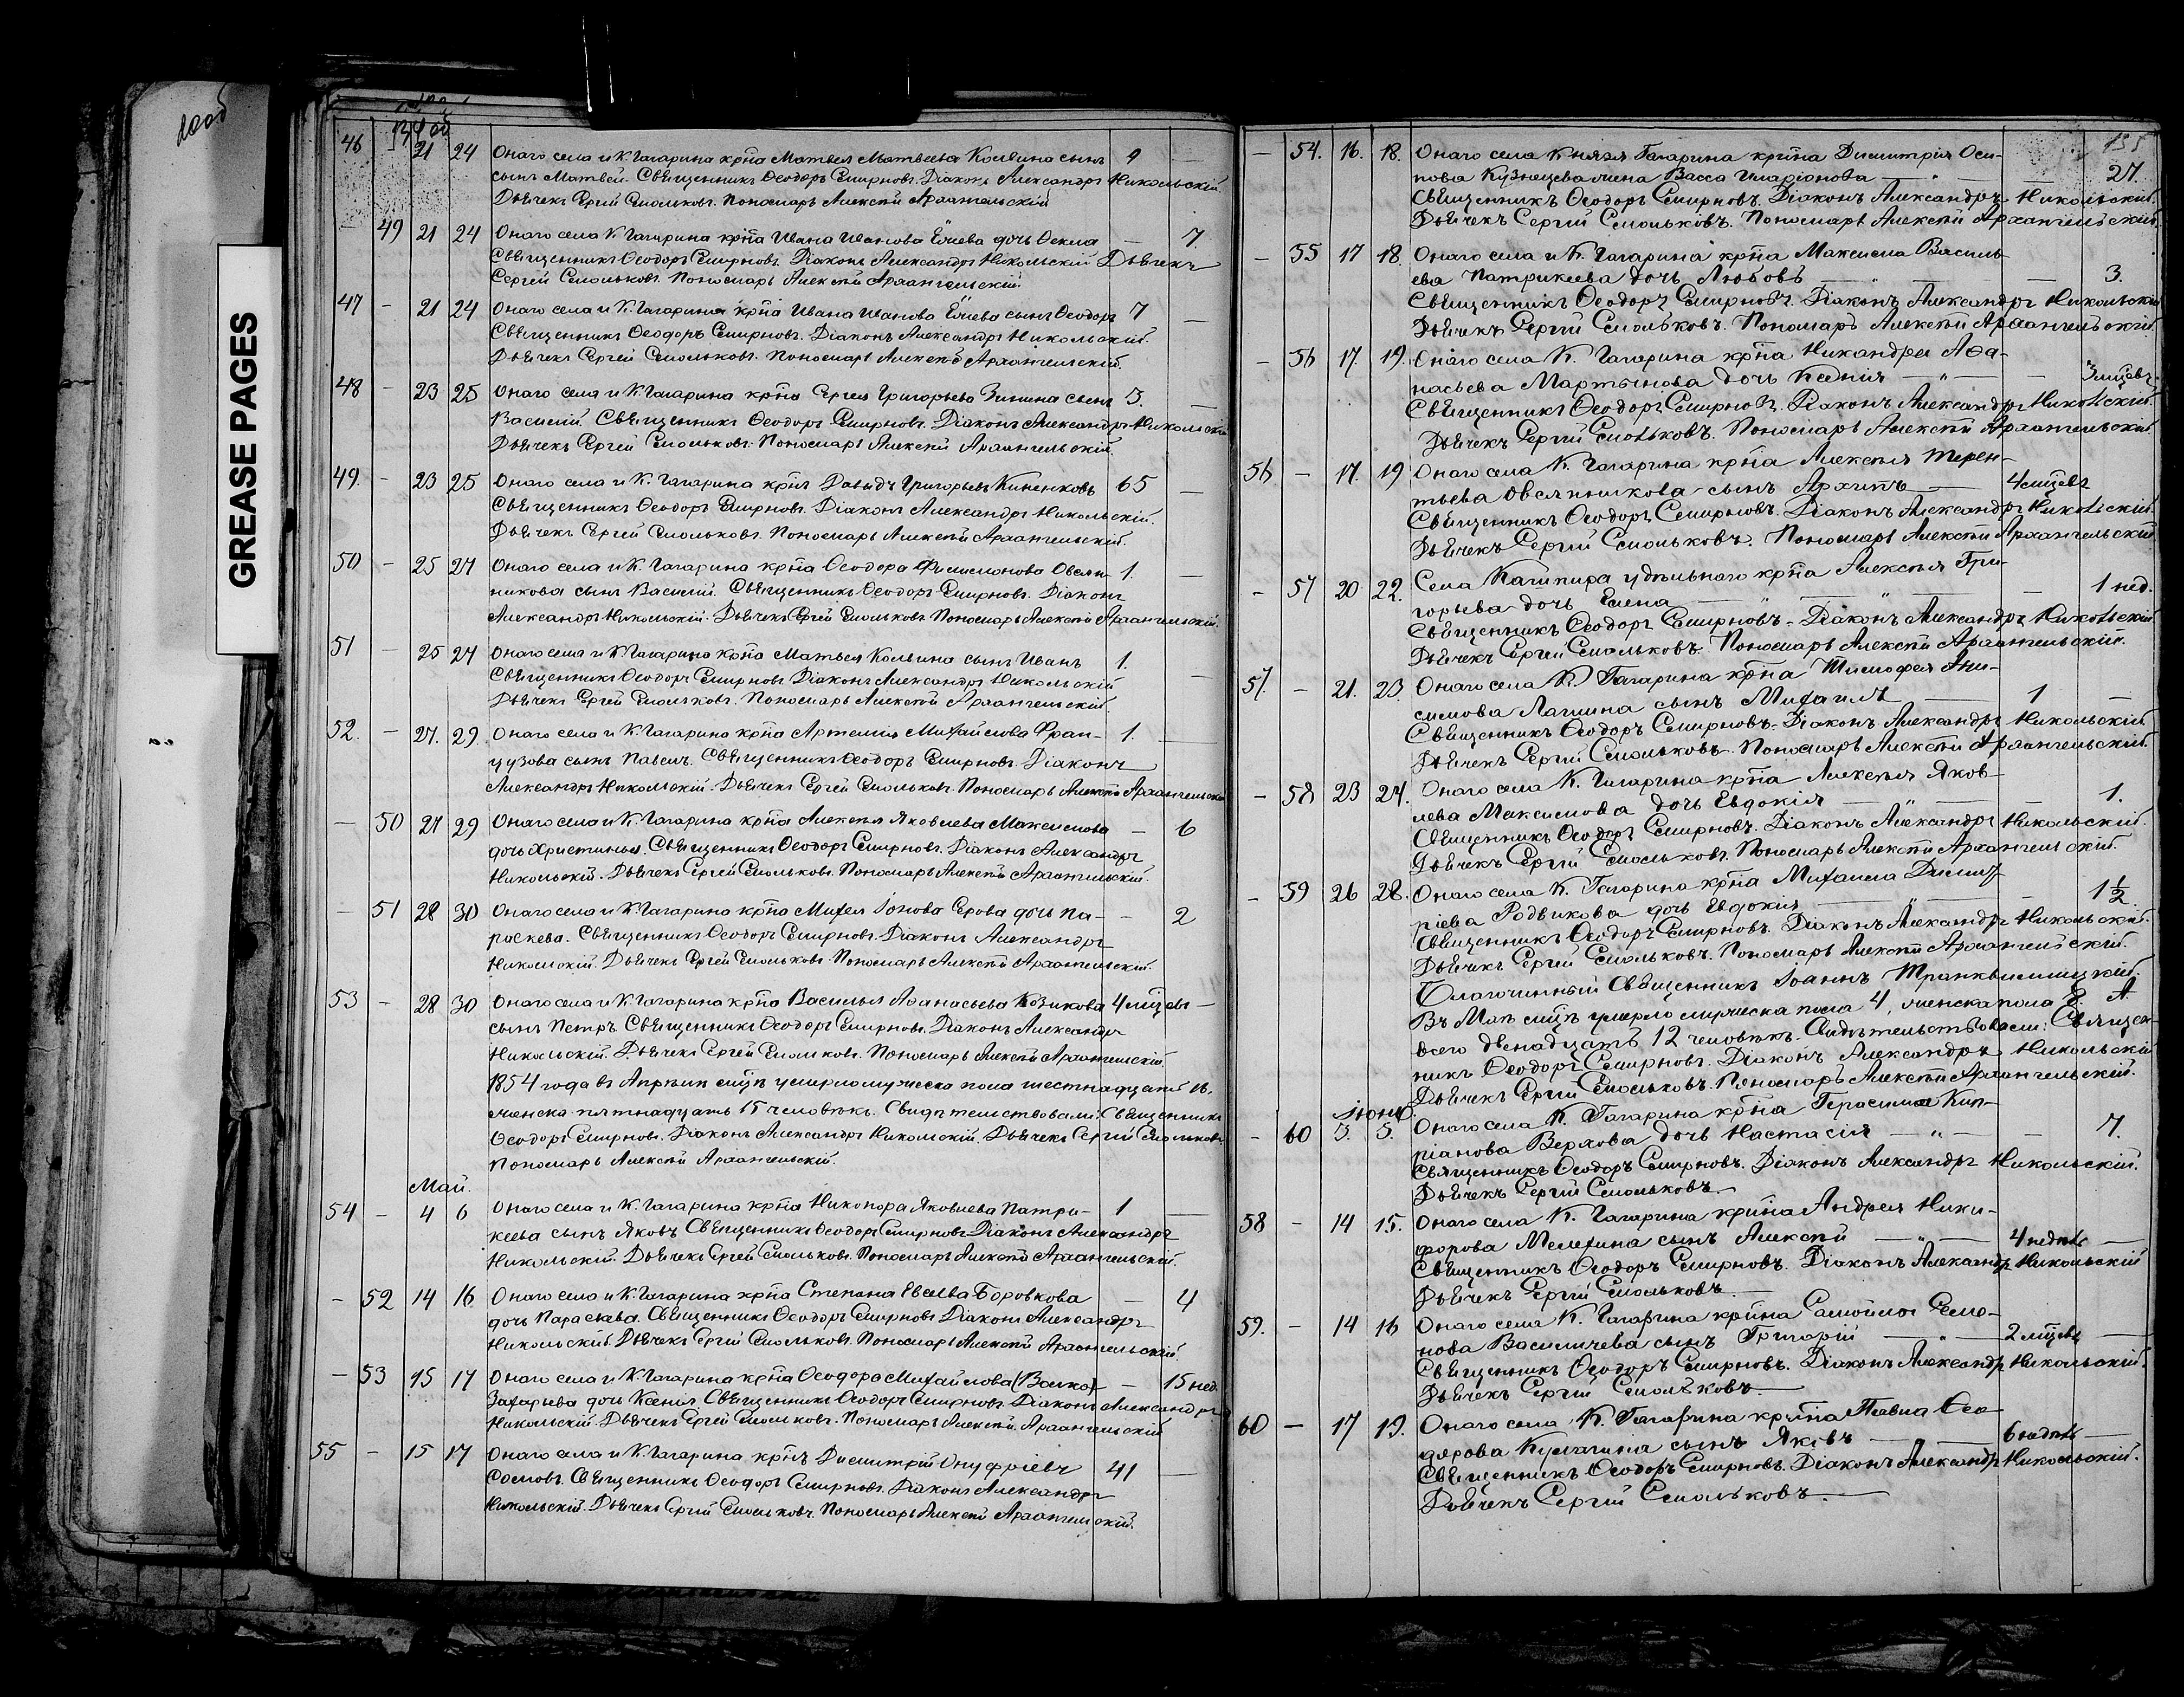 GREASE PAGES
134 об
46 21 24 Онаго села и К. Гагарина крна Матвея Матвеева Колвина сынъ 9 —
сынъ Матвей. Священникъ Ѳеодоръ Смирновъ. Діаконъ Александръ Никольскій.
Дьячекъ Сергей Смольковъ. Пономарь Алексѣй Архангельскій
— 49 21 24 Онаго села К. Гагарина крна Ивана Иванова дочь Ѳекла — 7
Священникъ Ѳеодоръ Смирновъ. Діаконъ Александръ Никольскій Дьячекъ
Сергей Смольковъ. Пономарь Алексѣй Архангельскій.
47 — 21 24 Онаго села и К. Гагарина крна Ивана Иванова сынъ Ѳеодоръ 7 —
Священникъ Ѳеодоръ Смирновъ. Діаконъ Александръ Никольскій.
Дьячекъ Сергей Смольковъ. Пономарь Алексѣй Архангельскій.
48 — 23 25 Онаго села и К. Гагарина крна Сергея Григорьева Зинина сынъ 3. —
Василій. Священникъ Ѳеодоръ Смирновъ. Діаконъ Александръ Никольскій
Дьячекъ Сергей Смольковъ. Пономарь Алексѣй Архангельскій
49. — 23 25 Онаго села и К. Гагарина крнъ Давыдъ Григорьевъ Киненковъ 65 —
Священникъ Ѳеодоръ Смирновъ. Діаконъ Александръ Никольскій.
Дьячекъ Сергей Смольковъ. Пономарь Алексѣй Архангельскій.
50 — 25 27 Онаго села и К. Гагарина крна Ѳеодора Филимонова Овсян- 1. —
никова сынъ Василій. Священникъ Ѳеодоръ Смирновъ. Діаконъ
Александръ Никольскій. Дьячекъ Сергей Смольковъ. Пономарь Алексѣй Архангельскій.
51 — 25 27 Онаго села и К. Гагарина крна Матвея Колвина сынъ Иванъ 1. —
Священникъ Ѳеодоръ Смирновъ Діаконъ Александръ Никольскій
Дьячекъ Сергей Смольковъ. Пономарь Алексѣй Архангельскій.
52. — 27. 29. Онаго села и К. Гагарина крна Артемія Михайлова Фран- 1. —
цузова сынъ Павелъ. Священникъ Ѳеодоръ Смирновъ. Діаконъ
Александръ Никольскій. Дьячекъ Сергей Смольковъ. Пономарь Алексѣй Архангельскій
— 50 27 29 Онаго села и К. Гагарина крна Алексѣя Яковлева Максимова — 6
дочь Христинья. Священникъ Ѳеодоръ Смирновъ. Діаконъ Александръ
Никольскій. Дьячекъ Сергей Смольковъ. Пономарь Алексѣй Архангельскій.
— 51 28 30 Онаго села и К. Гагарина крна Михея Іонова Серова дочь Па- — 2
раскева. Священникъ Ѳеодоръ Смирновъ. Діаконъ Александръ
Никольскій. Дьячекъ Сергей Смольковъ. Пономарь Алексѣй Архангельскій.
53 — 28 30 Онаго села и К. Гагарина крна Василья Аѳанасьева Козикова 4 мцевъ —
сынъ Петръ Священникъ Ѳеодоръ Смирновъ. Діаконъ Александръ
Никольскій. Дьячекъ Сергей Смольковъ. Пономарь Алексѣй Архангельскій.
1854 года въ Апрѣлѣ мцѣ умерло мужеска пола шестнадцать 16.
женска пятнадцать 15 человѣкъ. Свидѣтельствовали: Священникъ
Ѳеодоръ Смирновъ. Діаконъ Александръ Никольскій. Дьячекъ Сергей Смольковъ
Пономарь Алексѣй Архангельскій.
Май.
54 — 4 6 Онаго села и К. Гагарина крна Никонора Яковлева Патри- 1 —
кеева сынъ Яковъ Священникъ Ѳеодоръ Смирновъ Діаконъ Александръ
Никольскій. Дьячекъ Сергей Смольковъ. Пономарь Алексѣй Архангельскій.
— 52 14 16 Онаго села и К. Гагарина крна Степана Евсеева Боровкова — 4
дочь Параскева. Священникъ Ѳеодоръ Смирновъ Діаконъ Александръ
Никольскій. Дьячекъ Сергей Смольковъ. Пономарь Алексѣй Архангельскій.
— 53 15 17 Онаго села и К. Гагарина крна Ѳеодора Михайлова (Волко) — 15 нед.
Захарьева дочь Ксенія. Священникъ Ѳеодоръ Смирновъ. Діаконъ Александръ
Никольскій. Дьячекъ Сергей Смольковъ. Пономарь Алексѣй Архангельскій
55 — 15 17 Онаго села и К. Гагарина крнъ Димитрій Онуфріевъ 41 —
Сомовъ. Священникъ Ѳеодоръ Смирновъ. Діаконъ Александръ
Никольскій. Дьячекъ Сергей Смольковъ. Пономарь Алексѣй Архангельскій.
135
— 54. 16. 18. Онаго села Князя Гагарина крна Димитрія Оси-
пова Кузнецева жена Васса Иларіонова — 27.
Священникъ Ѳеодоръ Смирновъ. Діаконъ Александръ Никольскій.
Дьячекъ Сергій Смольковъ. Пономарь Алексѣй Архангельскій.
— 55 17 18. Онаго села и К. Гагарина крна Максима Василь-
ева Патрикеева дочь Любовь — 3.
Священникъ Ѳеодоръ Смирновъ. Діаконъ Александръ Никольскій
Дьячекъ Сергій Смольковъ. Пономарь Алексѣй Архангельскій.
— 56 17. 19. Онаго села К. Гагарина крна Никандра Аѳа-
насьева Мартынова дочь Ксенія — " — — 3 мцевъ.
Священникъ Ѳеодоръ Смирновъ. Діаконъ Александръ Никольскій.
Дьячекъ Сергій Смольковъ. Пономарь Алексѣй Архангельскій.
56 — 17. 19 Онаго села К. Гагарина крна Алексѣя Терен-
тьева Овсянникова сынъ Архипъ — 4 мцевъ
Священникъ Ѳеодоръ Смирновъ. Діаконъ Александръ Никольскій.
Дьячекъ Сергій Смольковъ. Пономарь Алексѣй Архангельскій
— 57 20 22. Села Кашпира удѣльнаго крна Алексѣя Гри-
горьева дочь Елена — " — " — — 1 нед.
Священникъ Ѳеодоръ Смирновъ. Діаконъ Александръ Никольскій.
Дьячекъ Сергій Смольковъ. Пономарь Алексѣй Архангельскій.
57. — 21. 23. Онаго села К. Гагарина крна Тимофея Ани-
симова Лапшина сынъ Михаилъ — 1 —
Священникъ Ѳеодоръ Смирновъ. Діаконъ Александръ Никольскій.
Дьячекъ Сергій Смольковъ. Пономарь Алексѣй Архангельскій.
— 58 23 24. Онаго села К. Гагарина крна Алексѣя Яков-
лева Максимова дочь Евдокія — 1.
Священникъ Ѳеодоръ Смирновъ. Діаконъ Александръ Никольскій.
Дьячекъ Сергій Смольковъ. Пономарь Алексѣй Архангельскій.
— 59 26 28. Онаго села К. Гагарина крна Михаила Димит-
ріева Родвикова дочь Евдокія — 1 1/2.
Священникъ Ѳеодоръ Смирновъ. Діаконъ Александръ Никольскій.
Дьячекъ Сергій Смольковъ. Пономарь Алексѣй Архангельскій.
Благочинный Священникъ Іоаннъ Транквиллицкій.
Въ Маѣ мцѣ умерло мужеска пола 4, женска пола 8. А
всего двенадцать 12 человѣкъ. Свидѣтельствовали: Священ-
никъ Ѳеодоръ Смирновъ. Діаконъ Александръ Никольскій
Дьячекъ Сергій Смольковъ. Пономарь Алексѣй Архангельскій.
Іюнь.
— 60 3. 5. Онаго села К. Гагарина крна Герасима Кип-
ріанова Верхова дочь Настасія — " — — 7.
Священникъ Ѳеодоръ Смирновъ. Діаконъ Александръ Никольскій.
Дьячекъ Сергій Смольковъ.
58 — 14 15. Онаго села К. Гагарина крина Андрея Ники-
форова Мелехина сынъ Алексѣй — " — 4 недѣль —
Священникъ Ѳеодоръ Смирновъ. Діаконъ Александръ Никольскій
Дьячекъ Сергій Смольковъ.
59. — 14 16 Онаго села К. Гагарина крина Самойлы Семе-
нова Василичева сынъ Григорій — " — 2 мцевъ —
Священникъ Ѳеодоръ Смирновъ. Діаконъ Александръ Никольскій.
Дьячекъ Сергій Смольковъ.
60 — 17 19. Онаго села К. Гагарина крина Павла Ѳео-
дорова Кулагина сынъ Яковъ — 6 недѣль —
Священникъ Ѳеодоръ Смирновъ. Діаконъ Александръ Никольскій.
Дьячекъ Сергій Смольковъ.